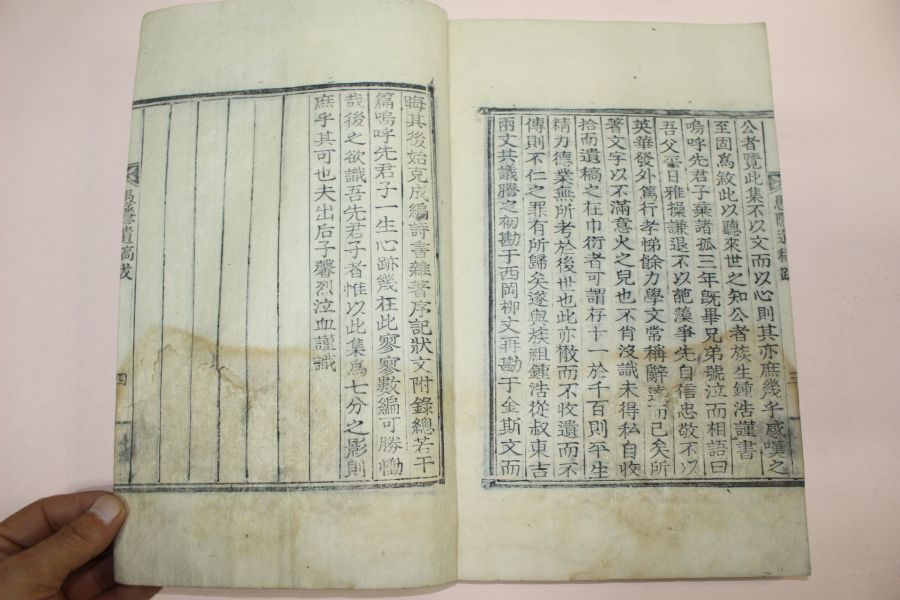 公者覽此集不以文而以心則其亦庶幾乎感嘆之
至固爲敍此以聽來世之知公者族生鍾浩謹書
嗚呼先君子棄諸孤三年旣畢兄弟號泣而相語曰
吾父平日雅操謙退不以葩藻爭先自信忠敬不以
英華發外篤行孝悌餘力學文常稱辭達而已矣所
著文字以不滿意火之兒也不肖沒識未得私自收
拾而遺稿之在巾衍者可謂存十一於千百則平生
精力德業無所考於後世也此亦散而不收遺而不
傳則不仁之罪有所歸矣遂與族祖鍾浩從叔東吉
兩丈共議謄之初勘于西岡柳丈再勘于金斯文而
晦其後始克成編詩書雜著序記狀文附錄總若干
篇嗚呼先君子一生心跡幾在此寥寥數編可勝慟
哉後之欲識吾先君子者惟以此集爲七分之影則
庶乎其可也夫出后子馨烈泣血謹識
遺稿跋
四